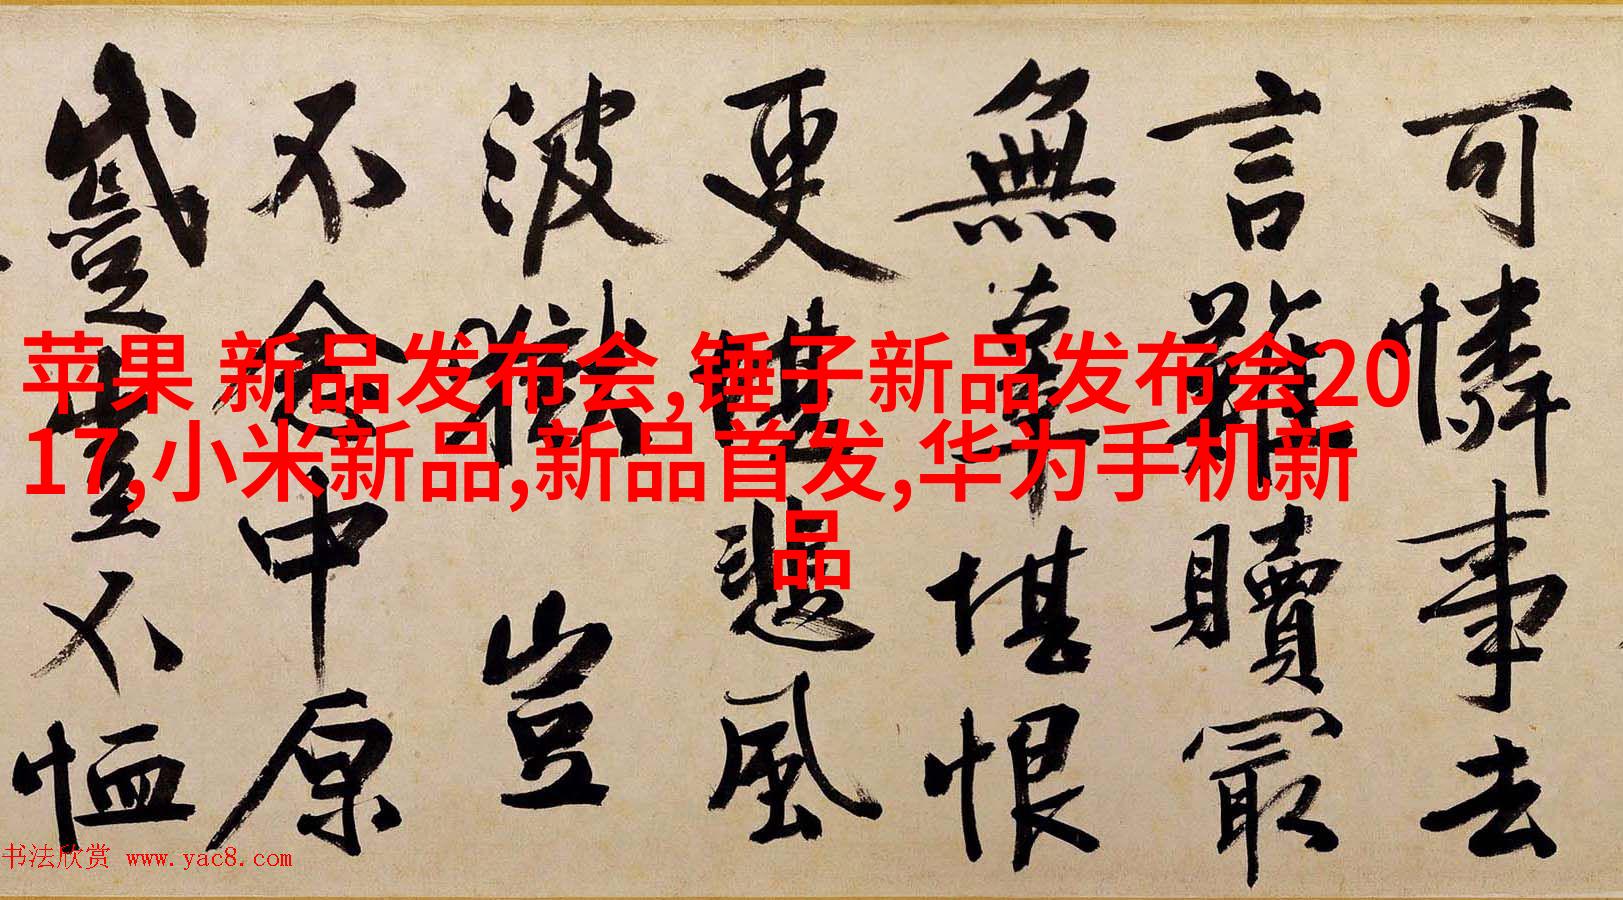 可憐事去
言難贖最
無辜堪恨
更堪悲風
波獄豈
不念中原
蹙豈不恤
苹果 新品发布会,锤子新品发布会20
17,小米新品,新品首发,华为手机新
品
书法欣赏 www.yac8.com